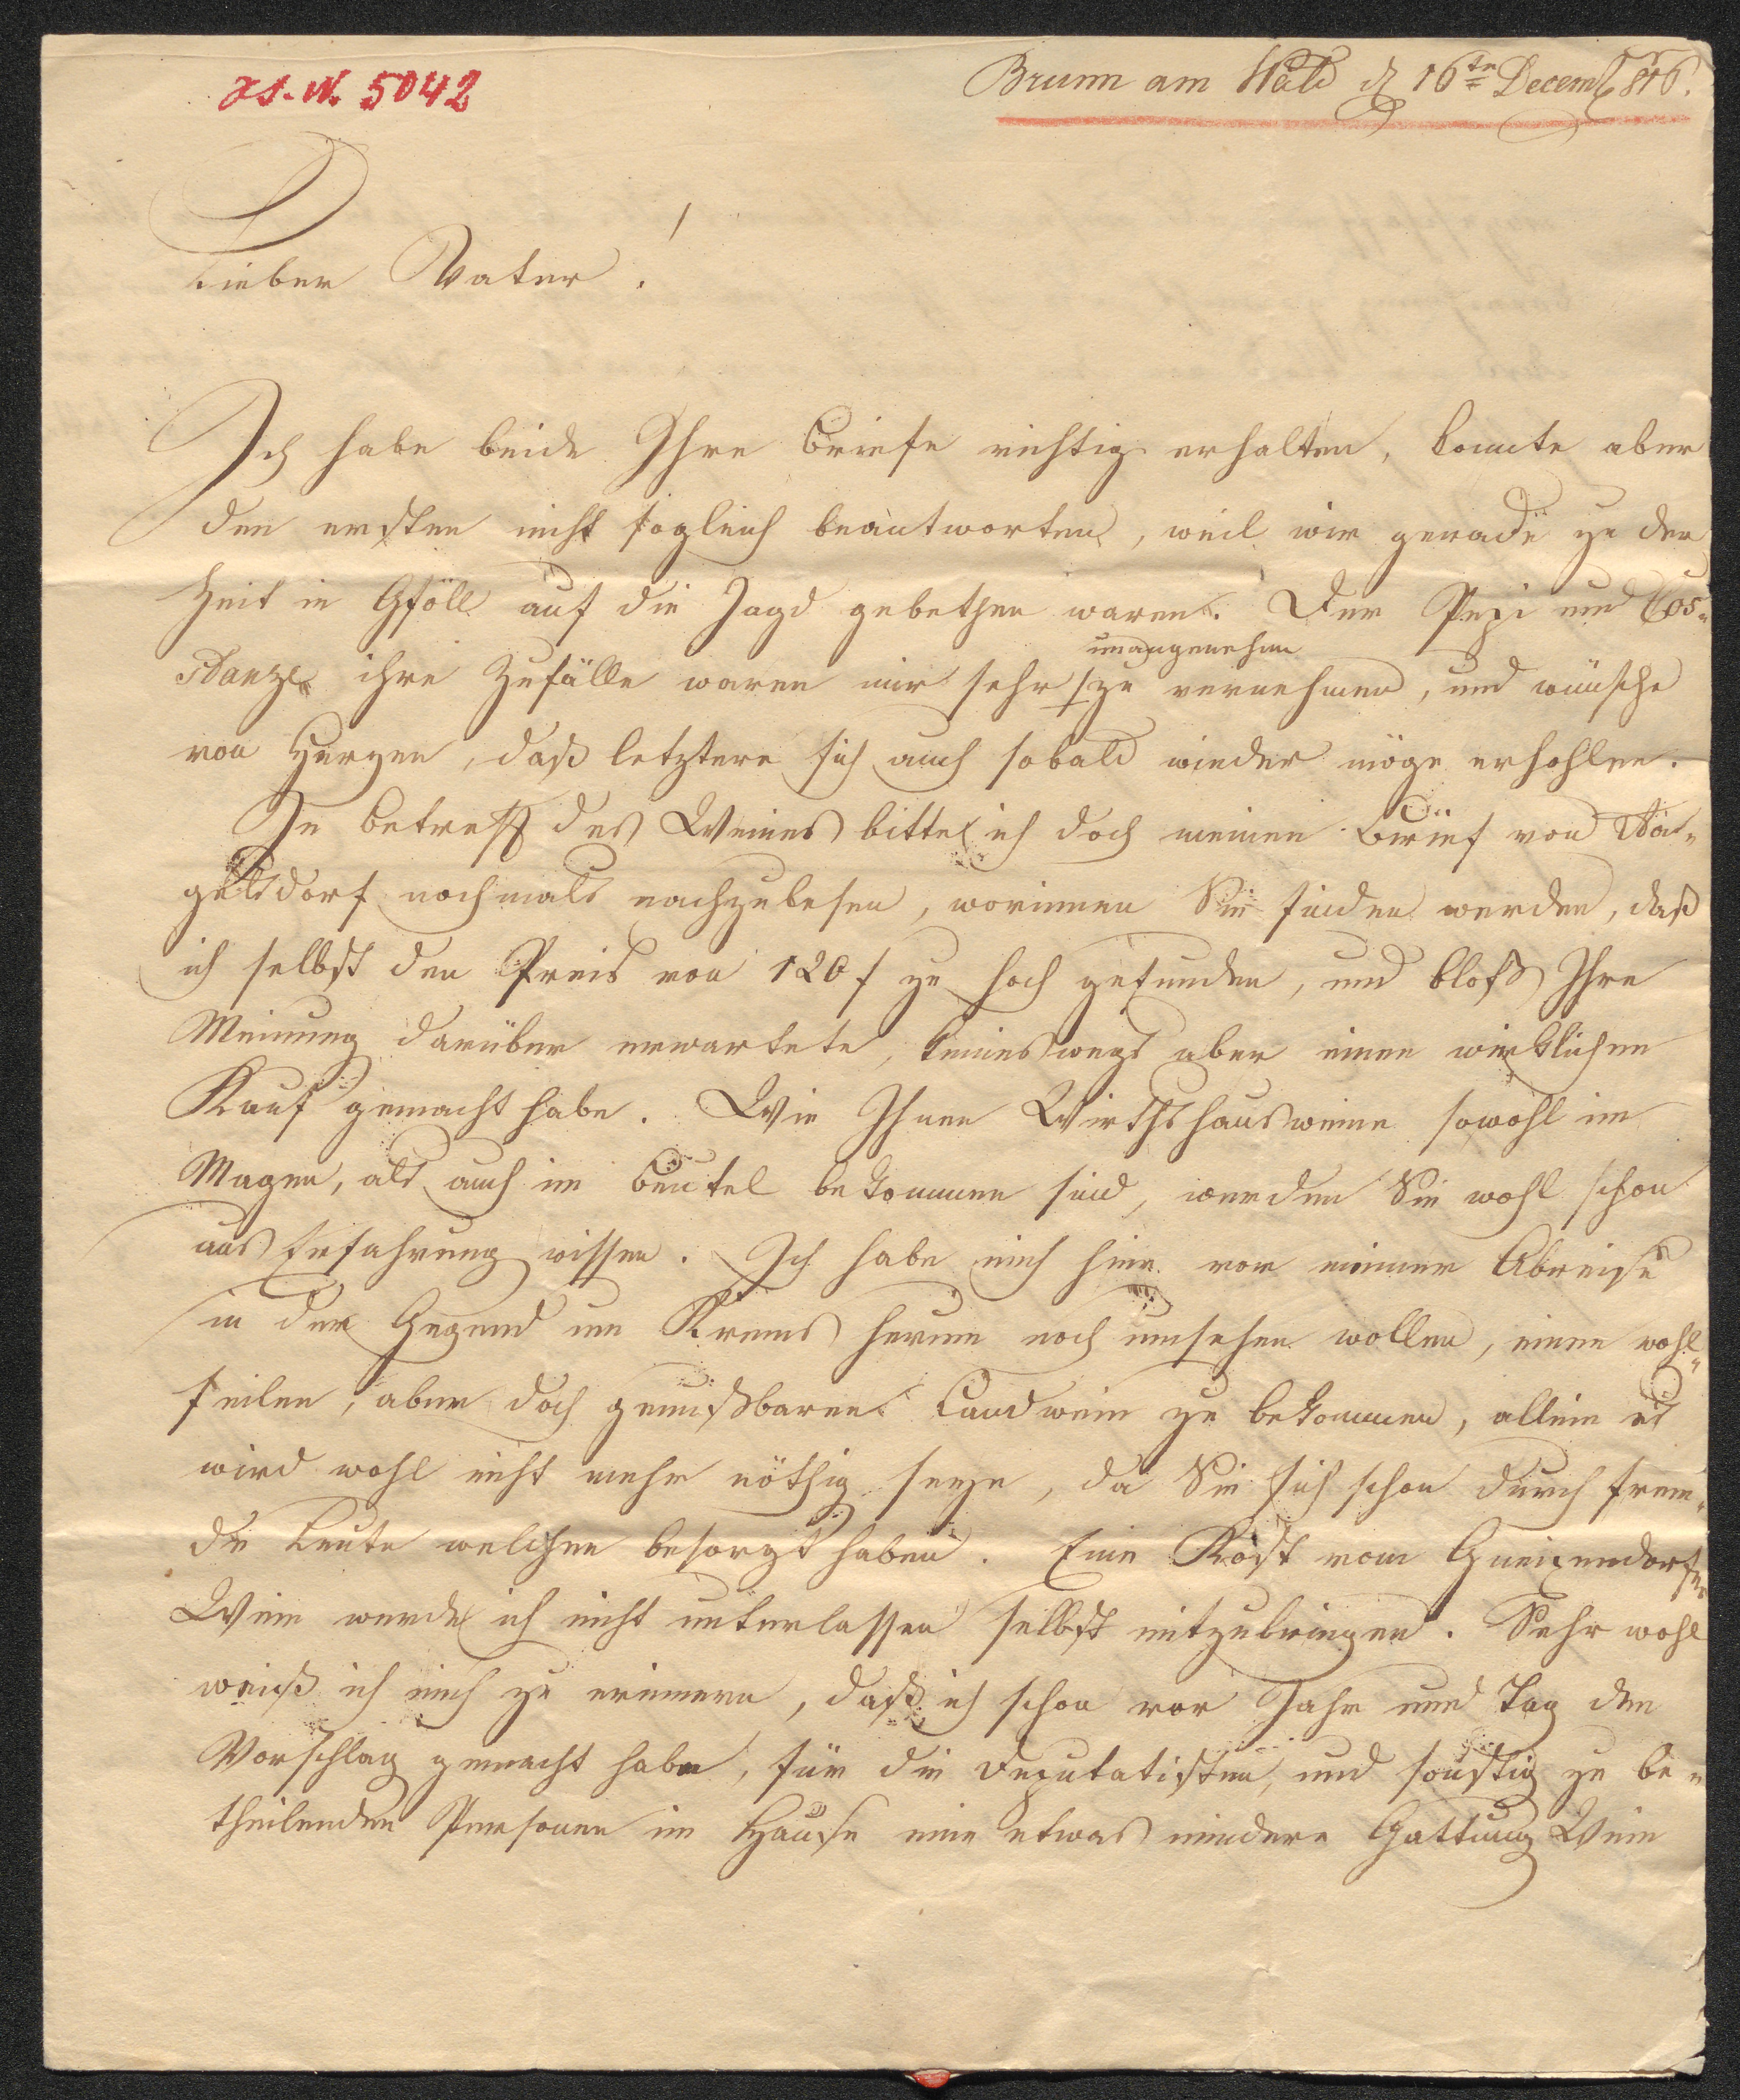 J. N. 5042
Brunn am Wald d 16tn Decemb 816.
Lieber Vater!
Ich habe beide Ihre Briefe richtig erhalten, konnte aber
den ersten nicht sogleich beantworten, weil wir gerade zu der
Zeit in Gföll auf die Jagd gebethen waren. Der Pepi und Cos-
stanze ihre Zufälle waren mir sehr unangenehm zu vernehmen, und wünsche
von Herzen, daß letztere sich auch sobald wieder möge erhohlen.
In betreff des Weines bitte ich doch meinen Brief von
nochmals nachzulesen, worinnen Sie finden werden, daß
ich selbst den Preis von 120 f zu hoch gefunden, und bloß Ihre
Meinung darüber erwartete, keineswegs aber einen wirklichen
Kauf gemacht habe. Wie Ihnen Wirthshausweine sowohl im
Magen, als auch im Beutel bekommen sind, werden Sie wohl schon
aus Erfahrung wissen. Ich habe mich hier vor meiner Abreise
in der Gegend um Krems herum noch umsehen wollen, einen wohl-
feilen, aber doch genußbaren Landwein zu bekommen, allein es
wird wohl nicht mehr nöthig seyn, da Sie sich schon durch frem-
de Leute welchen besorgt haben. Eine Kost vom Gneixendorfer
Wein werde ich nicht unterlassen selbst mitzubringen. Sehr wohl
weiß ich mich zu erinnern, daß ich schon vor Jahr und Tag den
Vorschlag gemacht habe, für die Deputatisten, und sonstig zu be-
theilenden Personen im Hause eine etwas mindere Gattung Wein